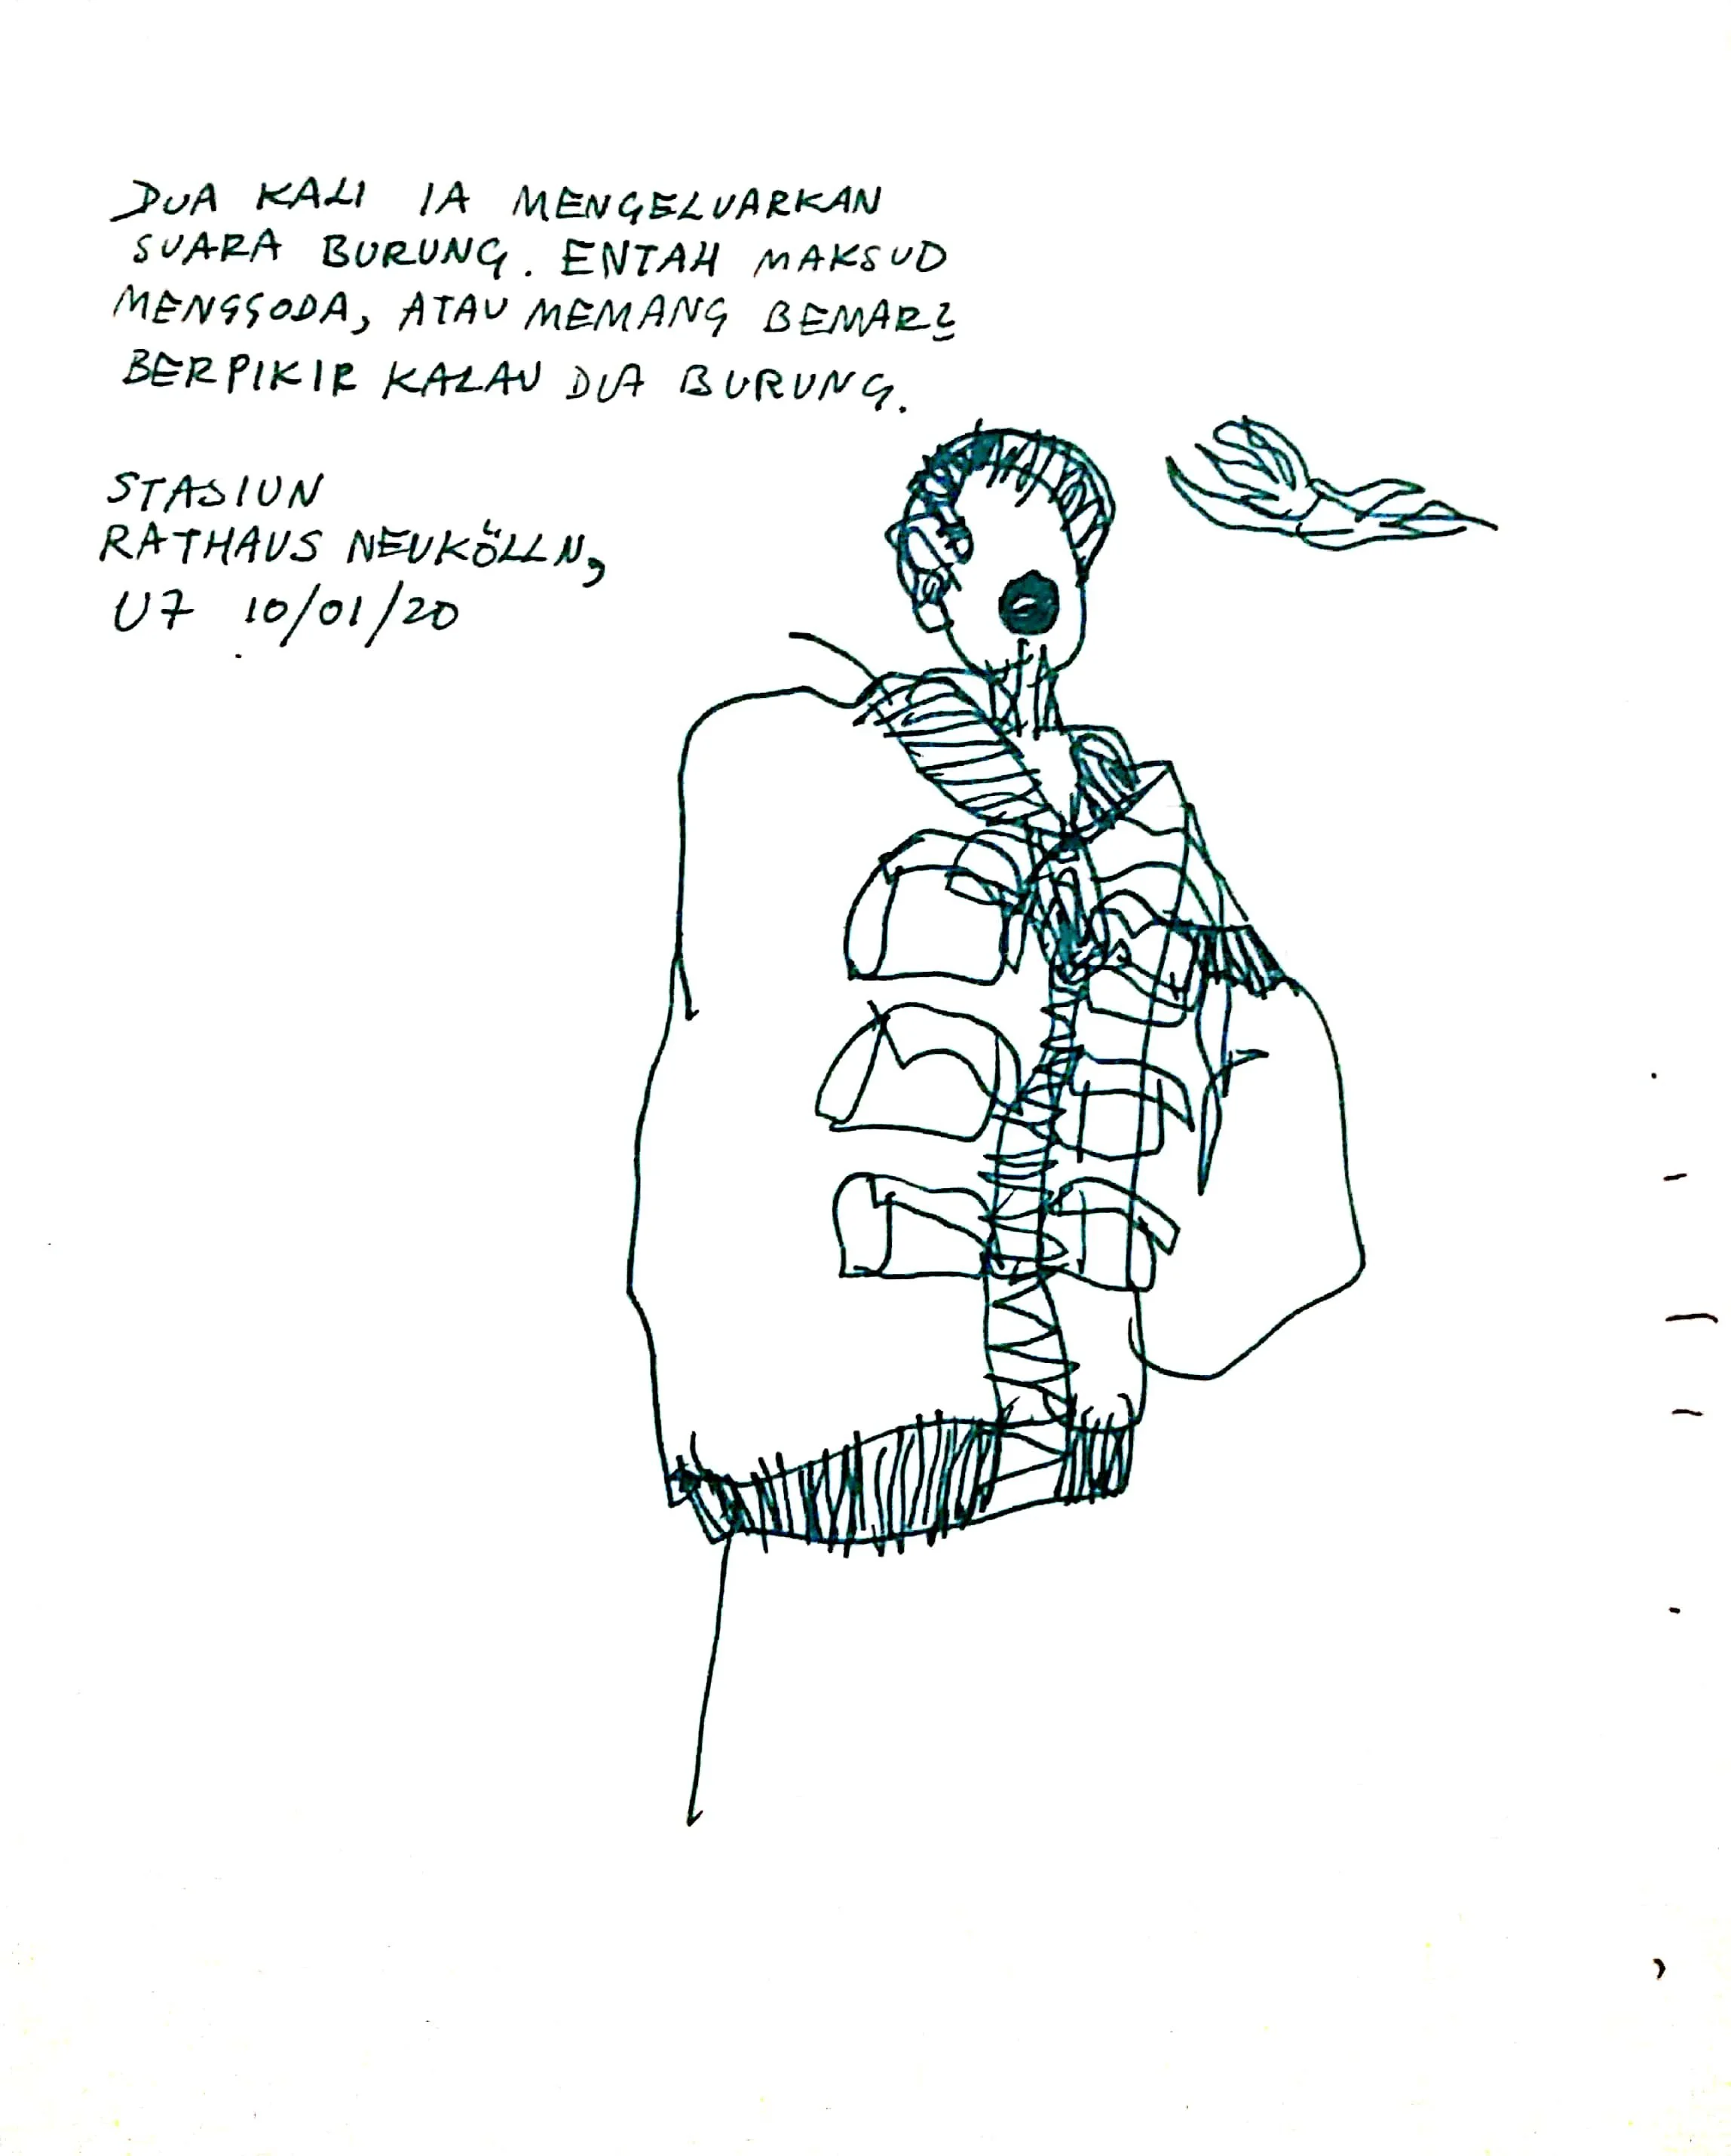 DUA KALI IA MENGELUARKAN
SUARA BURUNG. ENTAH MAKSUD
MENGGODA, ATAU MEMANG BEMAR2
BERPIKIR KALAU DIA BURUNG.
STASIUN
RATHAUS NEUKÖLLN,
U7 10/01/20